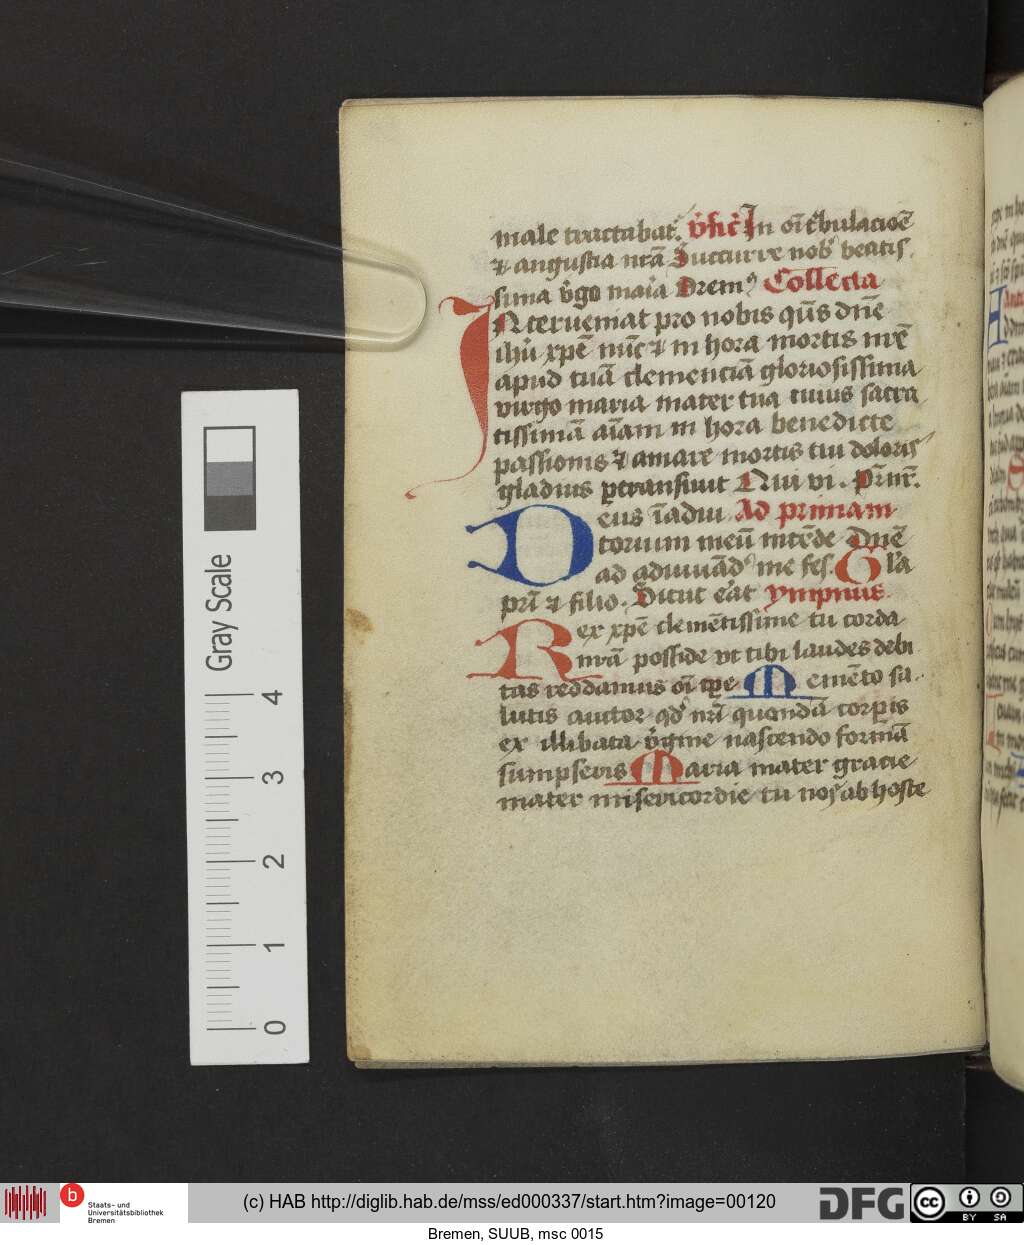 male tractabat. v̓sic̓ In oī t̓bulacioē
⁊ angustia nr̄a Succurre nob̓ beatis-
sima v̓go maria Orem⁹ Collecta
Nterueniat pro nobis qūs dn̄e
ih̄u xp̄e nūc ⁊ in hora mortis nr̄e
apud tuā clemenciā gloriosissima
virgo maria mater tua cuius sacra
tissimā aīam in hora benedicte
passionis ⁊ amare mortis tui doloris
gladius ꝑtransiuit Qui vi. Pr̄ nr̄.
Deus ī adiu Ad primam
torium meū intēde Dn̄e
ad adiuuād̓ me fes. Gl̄a
pr̄i ⁊ filio. Sicut er̄at ympnus
Rex xp̄e clemētissime tu corda
nr̄ā posside vt tibi laudes debi
tas reddamus oī tp̄e Memēto sa-
lutis auctor qd̓ nr̄i quondā corꝑis
ex illibata v̓gine nascendo formā
sumpseris Maria mater gracie
mater misericordie tu nos ab hoste
Gray Scale
4
3
2
1
0
b
Staats- und
Universitätsbibliothek
Bremen
(c) HAB http://diglib.hab.de/mss/ed000337/start.htm?image=00120
DFG
cc
BY SA
Bremen, SUUB, msc 0015